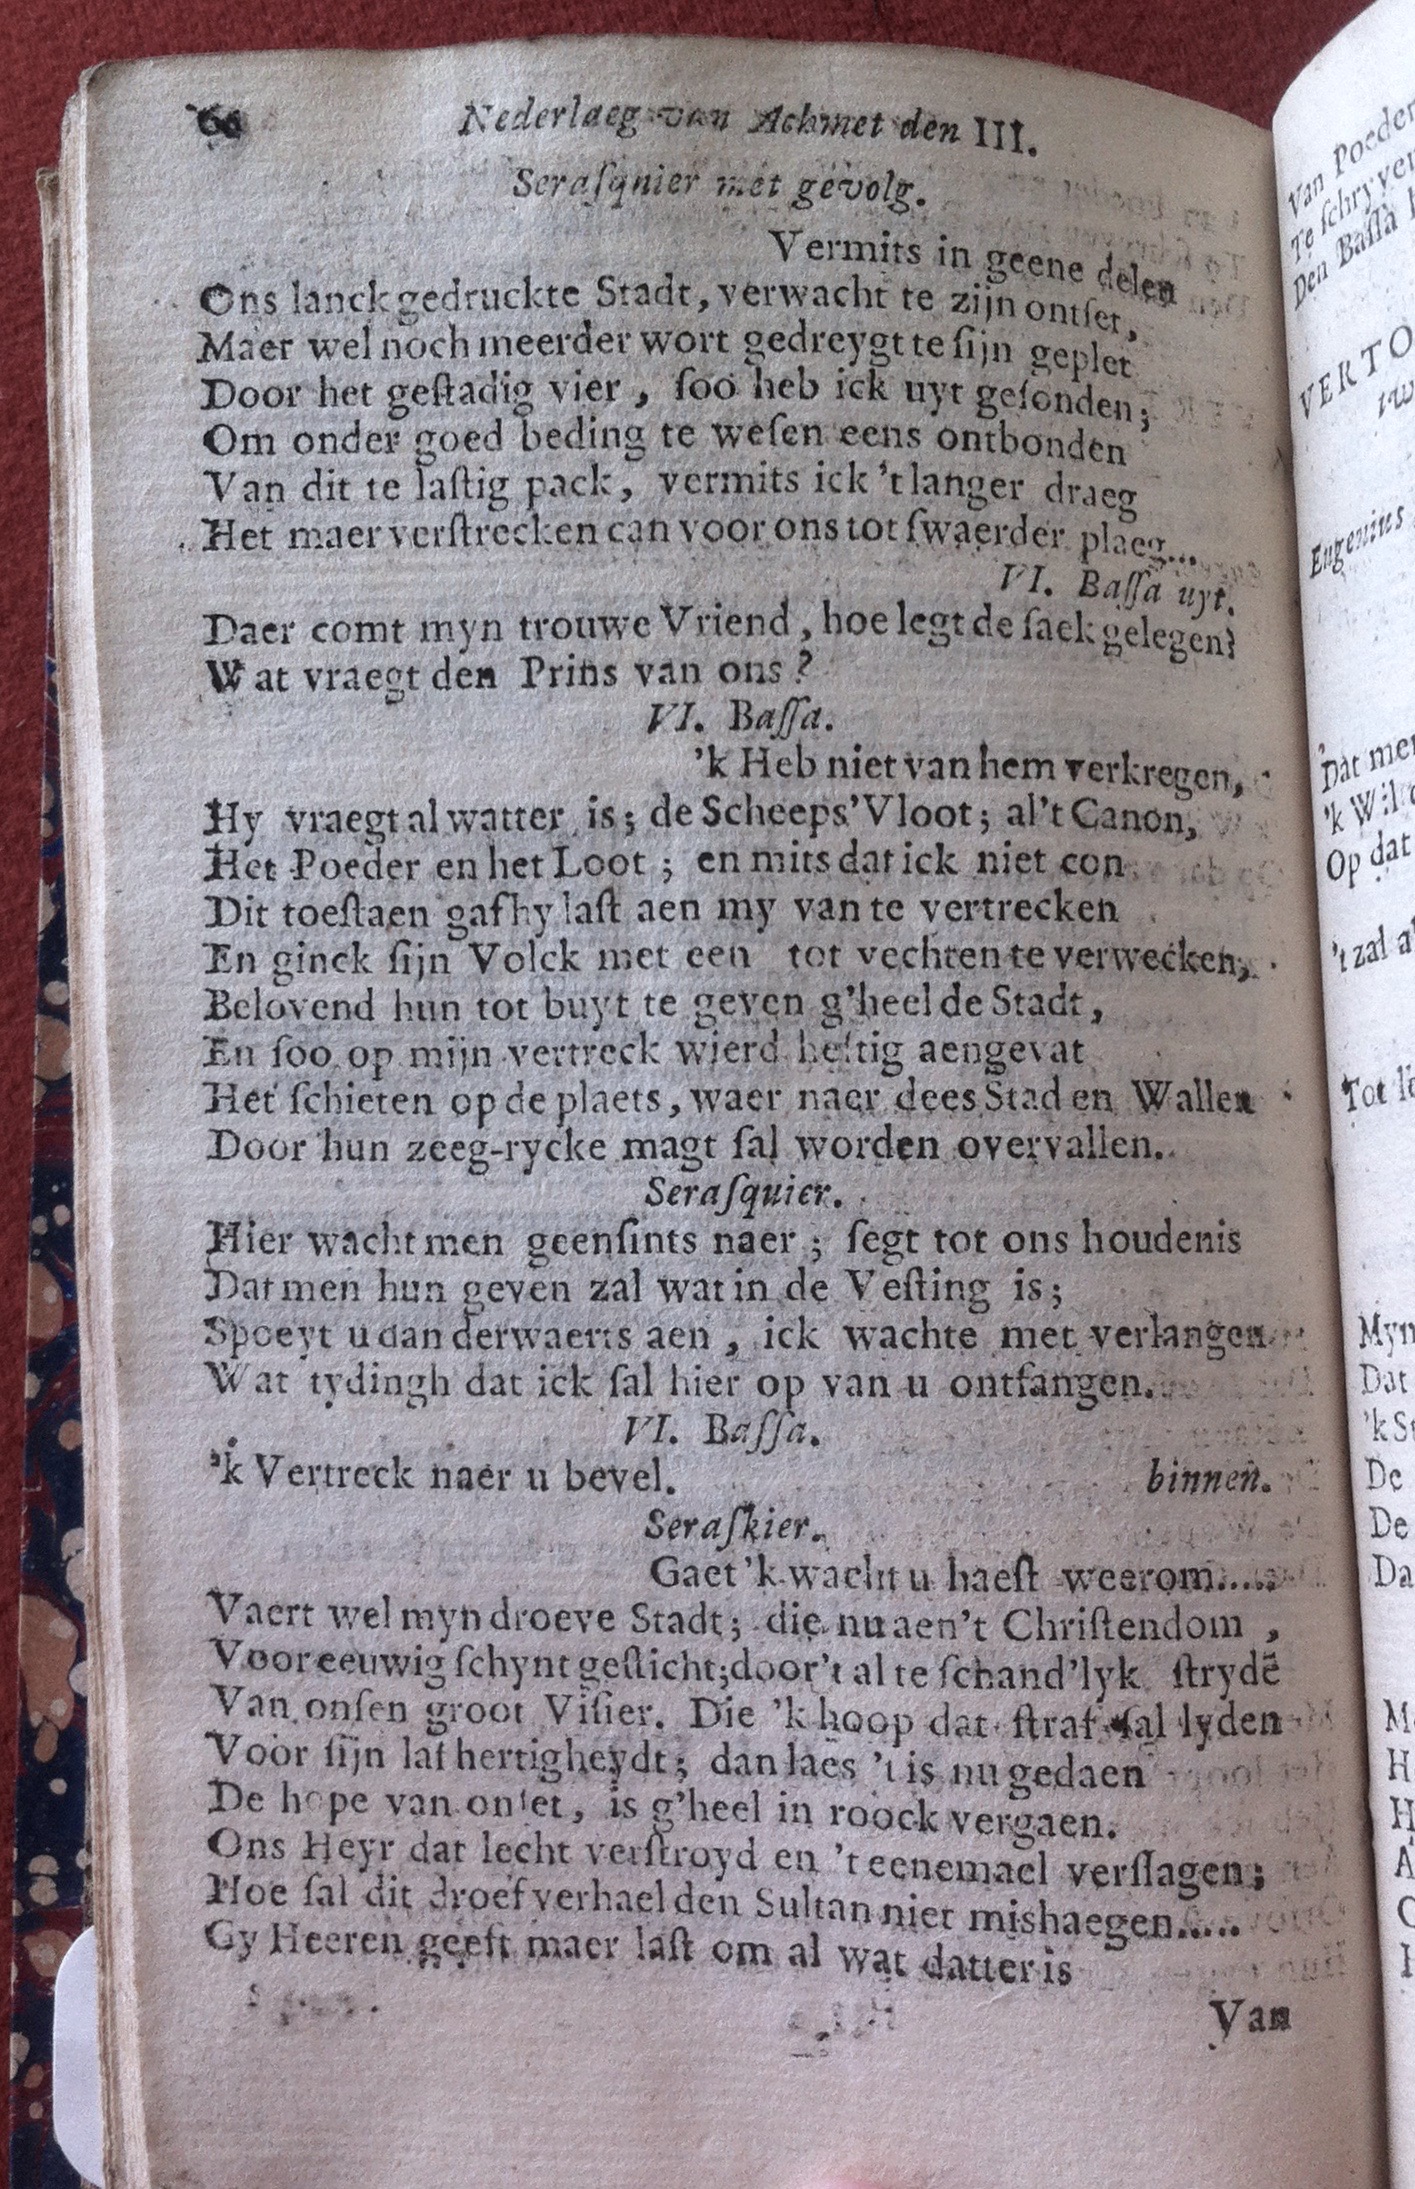 60 Nederlaeg van Achmet den III.
Seraſqnier met gevolg.
Vermits in geene delen
Ons lanck gedruckte Stadt, verwacht te zijn ontſet,
Maer wel noch meerder wort gedreygt te ſijn geplet
Door het geſtadig vier, ſoo heb ick uyt geſonden;
Om onder goed beding te weſen eens ontbonden
Van dit te laſtig pack, vermits ick 't langer draeg
Het maer verſtrecken can voor ons tot ſwaerder plaeg...
VI. Baſſa uyt.
Daer comt myn trouwe Vriend, hoe legt de ſaek gelegen?
Wat vraegt den Prins van ons?
VI. Baſſa.
'k Heb niet van hem verkregen,
Hy vraegt al watter is; de Scheeps'Vloot; al't Canon,
Het Poeder en het Loot; en mits dat ick niet con
Dit toeſtaen gaf hy laſt aen my van te vertrecken
En ginck ſijn Volck met een tot vechten te verwecken,
Belovend hun tot buyt te geven g'heel de Stadt,
En ſoo op mijn vertreck wierd heftig aengevat
Het ſchieten op de plaets, waer naer dees Stad en Wallen
Door hun zeeg-rycke magt ſal worden overvallen.
Seraſquier.
Hier wacht men geenſints naer; ſegt tot ons houdenis
Dat men hun geven zal wat in de Veſting is;
Spoeyt u dan derwaerts aen, ick wachte met verlangen
Wat tydingh dat ick ſal hier op van u ontfangen.
VI. Baſſa.
'k Vertreck naer u bevel. binnen.
Seraſkier.
Gaet 'k wacht u haeſt weerom.....
Vaert wel myn droeve Stadt; die nu aen't Chriſtendom,
Voor eeuwig ſchynt geſticht; door't al te ſchand'lyk ſtrydē
Van onſen groot Viſier. Die 'k hoop dat ſtraf ſal lyden
Voor ſijn laf hertigheydt; dan laes 't is nu gedaen
De hope van ontſet, is g'heel in roock vergaen.
Ons Heyr dat lecht verſtroyd en 't eenemael verſlagen;
Hoe ſal dit droef verhael den Sultan niet mishaegen.....
Gy Heeren geeft maer laſt om al wat datter is
Van
Van Poeder
Te ſchryven
Den Baſſa
VERTO
Eugenius
Dat men
'k Wil
Op dat
't zal
Myn
Dat
De
De